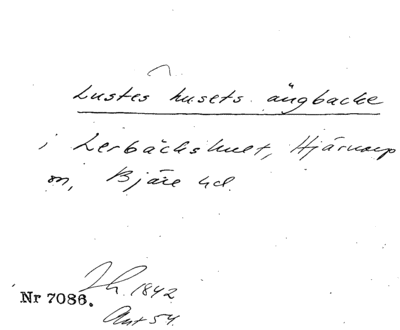 Lustes husets ängbacke
i Lerbäckshult, Hjärnarp
sn, Bjäre hd.
Jh. 1842
Nr 7086.
Ant 54.